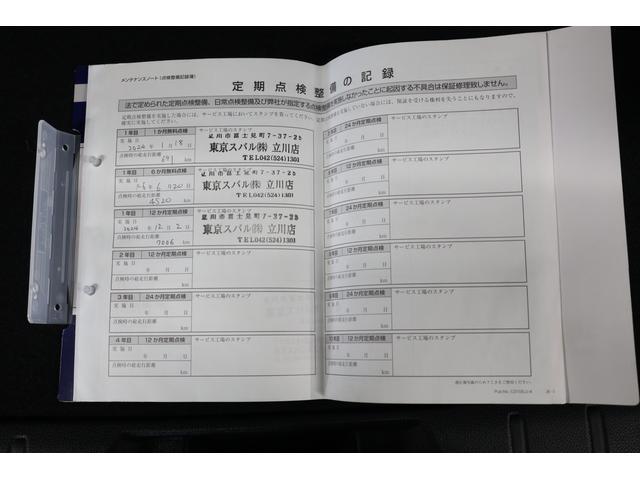 メンテナンスノート(点検整備記録簿)
定期点検整備の記録
法で定められた定期点検整備、日常点検及び弊社が指定する点検整備を実施しなかったことに起因する不具合は保証修理致しません。
定期点検整備を実施した場合には、サービス工場においてスタンプを貰ってください。
実施していない場合には、保証を受ける権利を失うこともなりますので、
1年目 1か月無料点検
サービス工場のスタンプ
実施日
2024年1月18日
点検時の総走行距離
691 km
立川市富士見町7-37-25
東京スバル㈱ 立川店
TEL042(524)1301
1年目 6か月無料点検
サービス工場のスタンプ
実施日
6月20日
点検時の総走行距離
4520 km
立川市富士見町7-37-25
東京スバル㈱ 立川店
TEL042(524)1301
1年目 12か月定期点検
サービス工場のスタンプ
実施日
2024年12月2日
点検時の総走行距離
7006 km
立川市富士見町7-37-25
東京スバル㈱ 立川店
TEL.042(524)1301
2年目 12か月定期点検
サービス工場のスタンプ
実施日
年 月 日
点検時の総走行距離
km
3年目 24か月定期点検
サービス工場のスタンプ
実施日
年 月 日
点検時の総走行距離
km
4年目 12か月定期点検
サービス工場のスタンプ
実施日
年 月 日
点検時の総走行距離
km
24か月定期点検
サービス工場のスタンプ
年 月 日
km
12か月定期点検
サービス工場のスタンプ
年 月 日
km
24か月定期点検
サービス工場のスタンプ
年 月 日
km
12か月定期点検
サービス工場のスタンプ
年 月 日
km
24か月定期点検
サービス工場のスタンプ
年 月 日
km
12か月定期点検
サービス工場のスタンプ
年 月 日
km